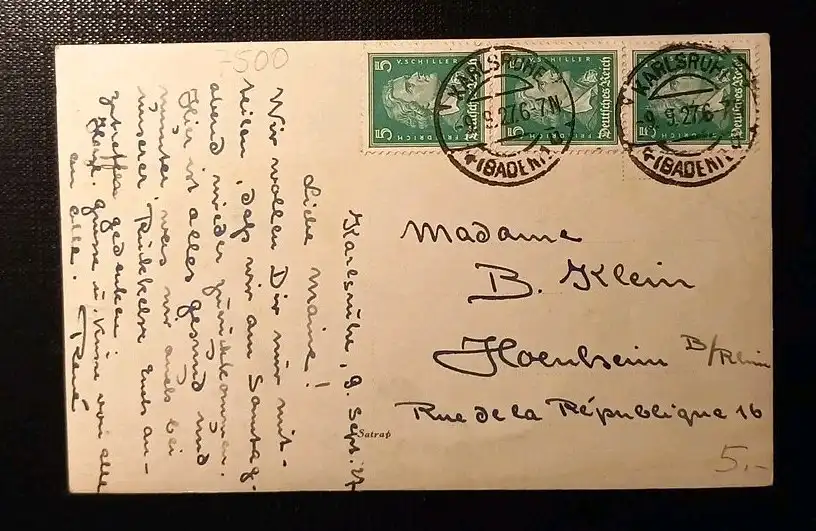 7500
Karlsruhe, 9. Sept. 27
Liebe Maine!
Wir wollen Dir nur mit-
teilen, daß wir am Samstag-
abend wieder zurückkommen.
Hier ist alles gesund und
munter, was wir auch bei
unserer Rückkehr Euch an-
zutreffen gedenken.
Herzl. Grüsse u. Küsse von alle
an alle. René
DEUTSCHES REICH
5 V. SCHILLER
5 FRIEDRICH
V. SCHILLER Deutsches Reich
5 FRIEDRICH
Deutsches Reich
KARLSRUHE
9.9.27.6-7N
(BADEN) 1
KARLSRUHE
9.9.27.6-7
(BADEN) 1
Madame
B. Klein
Hoenheim B/Rhin
Rue de la République 16
Satrap
5.-